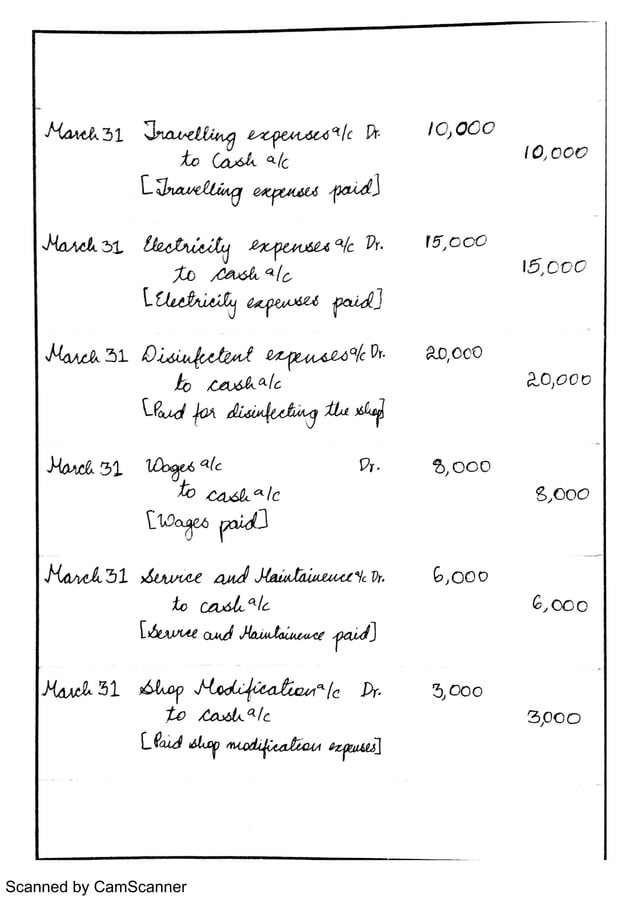 March 31 Travelling expenses a/c Dr. 10,000
to Cash a/c 10,000
[Travelling expenses paid]
March 31 Electricity expenses a/c Dr. 15,000
to cash a/c 15,000
[Electricity expenses paid]
March 31 Disinfectent expenses a/c Dr. 20,000
to cash a/c 20,000
[Paid for disinfecting the shop]
March 31 Wages a/c Dr. 8,000
to cash a/c 8,000
[Wages paid]
March 31 Service and Maintainence a/c Dr. 6,000
to cash a/c 6,000
[Service and Maintainence paid]
March 31 Shop Modification a/c Dr. 3,000
to cash a/c 3,000
[Paid shop modification expenses]
Scanned by CamScanner